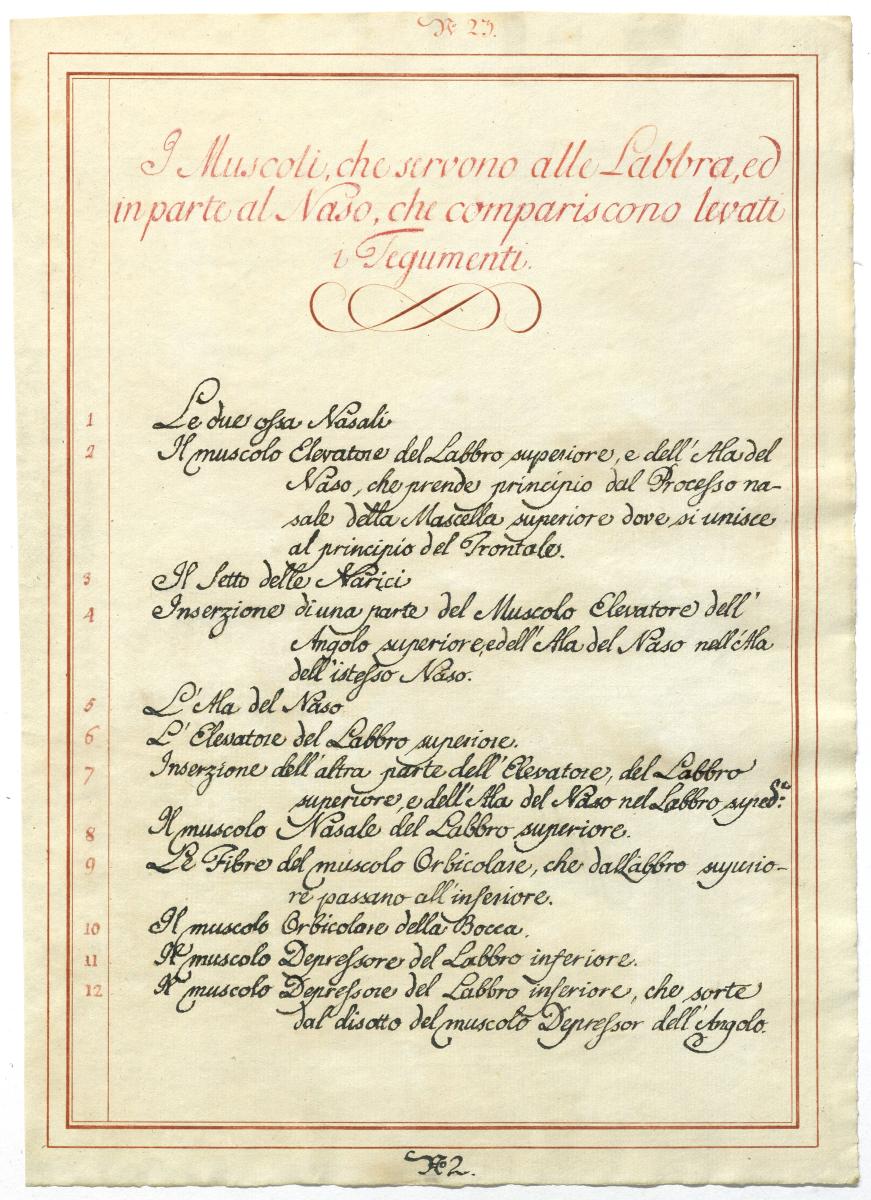 N.º 23.
I Muscoli, che servono alle Labbra, ed
in parte al Naso, che compariscono levati
i Tegumenti.
1 Le due ossa Nasali
2 Il muscolo Elevatore del Labbro superiore, e dell'Ala del
Naso, che prende principio dal Processo na-
sale della Mascella superiore dove si unisce
al principio del Frontale.
3 Il Setto delle Narici
4 Inserzione di una parte del Muscolo Elevatore dell'
Angolo superiore, e dell'Ala del Naso nell'Ala
dell'istesso Naso.
5 L'Ala del Naso
6 L'Elevatore del Labbro superiore.
7 Inserzione dell'altra parte dell'Elevatore, del Labbro
superiore, e dell'Ala del Naso nel Labbro
8 Il muscolo Nasale del Labbro superiore.
9 Le Fibre del muscolo Orbicolare, che dal Labbro superio-
re passano all'inferiore.
10 Il muscolo Orbicolare della Bocca.
11 Il muscolo Depressore del Labbro inferiore.
12 Il muscolo Depressore del Labbro inferiore, che sorte
dal disotto del muscolo Depressor dell'Angolo.
Nº 2.